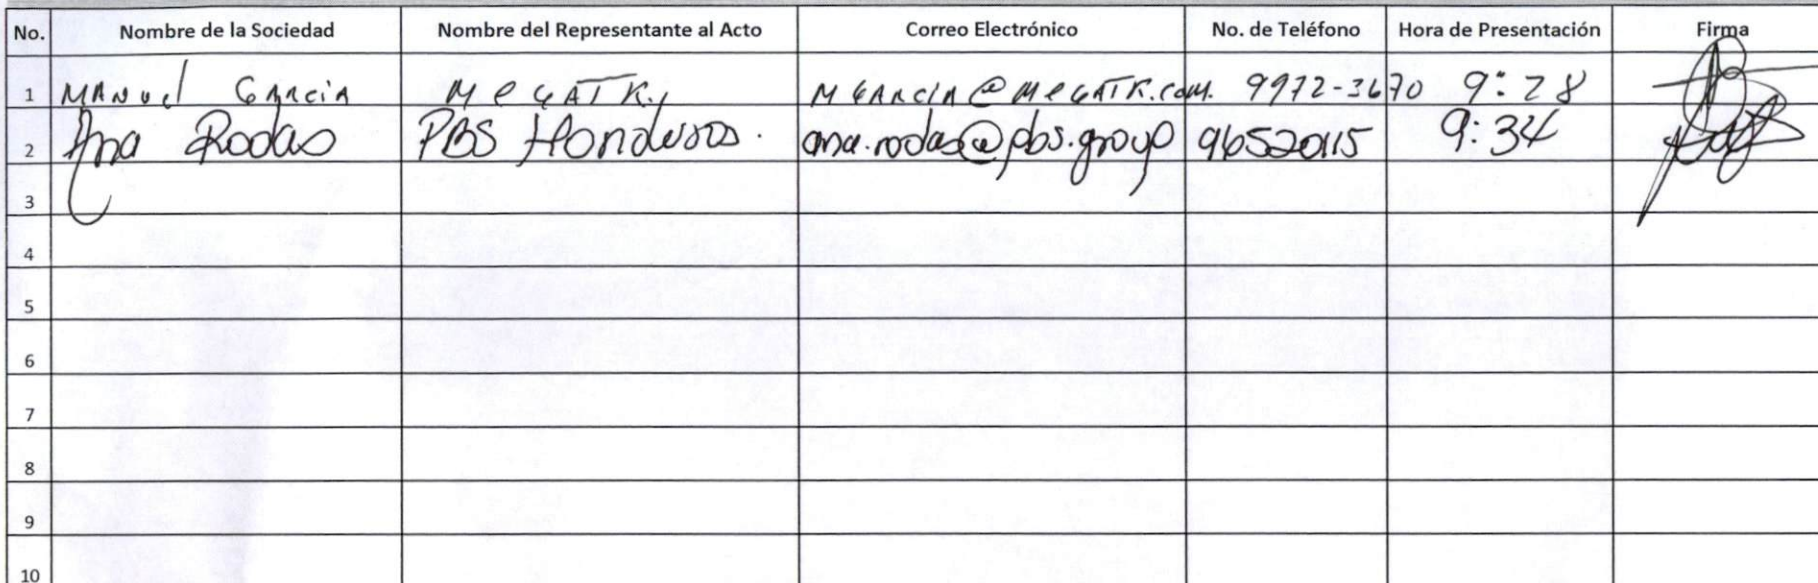 No. Nombre de la Sociedad Nombre del Representante al Acto Correo Electrónico No. de Teléfono Hora de Presentación Firma
1 MANuel GArciA MeGATK. MGArciA@MeGATK.com. 9972-3670 9:28
2 Ana Rodas PBS Honduras. ana.rodas@pbs.group 96520115 9:34
3
4
5
6
7
8
9
10